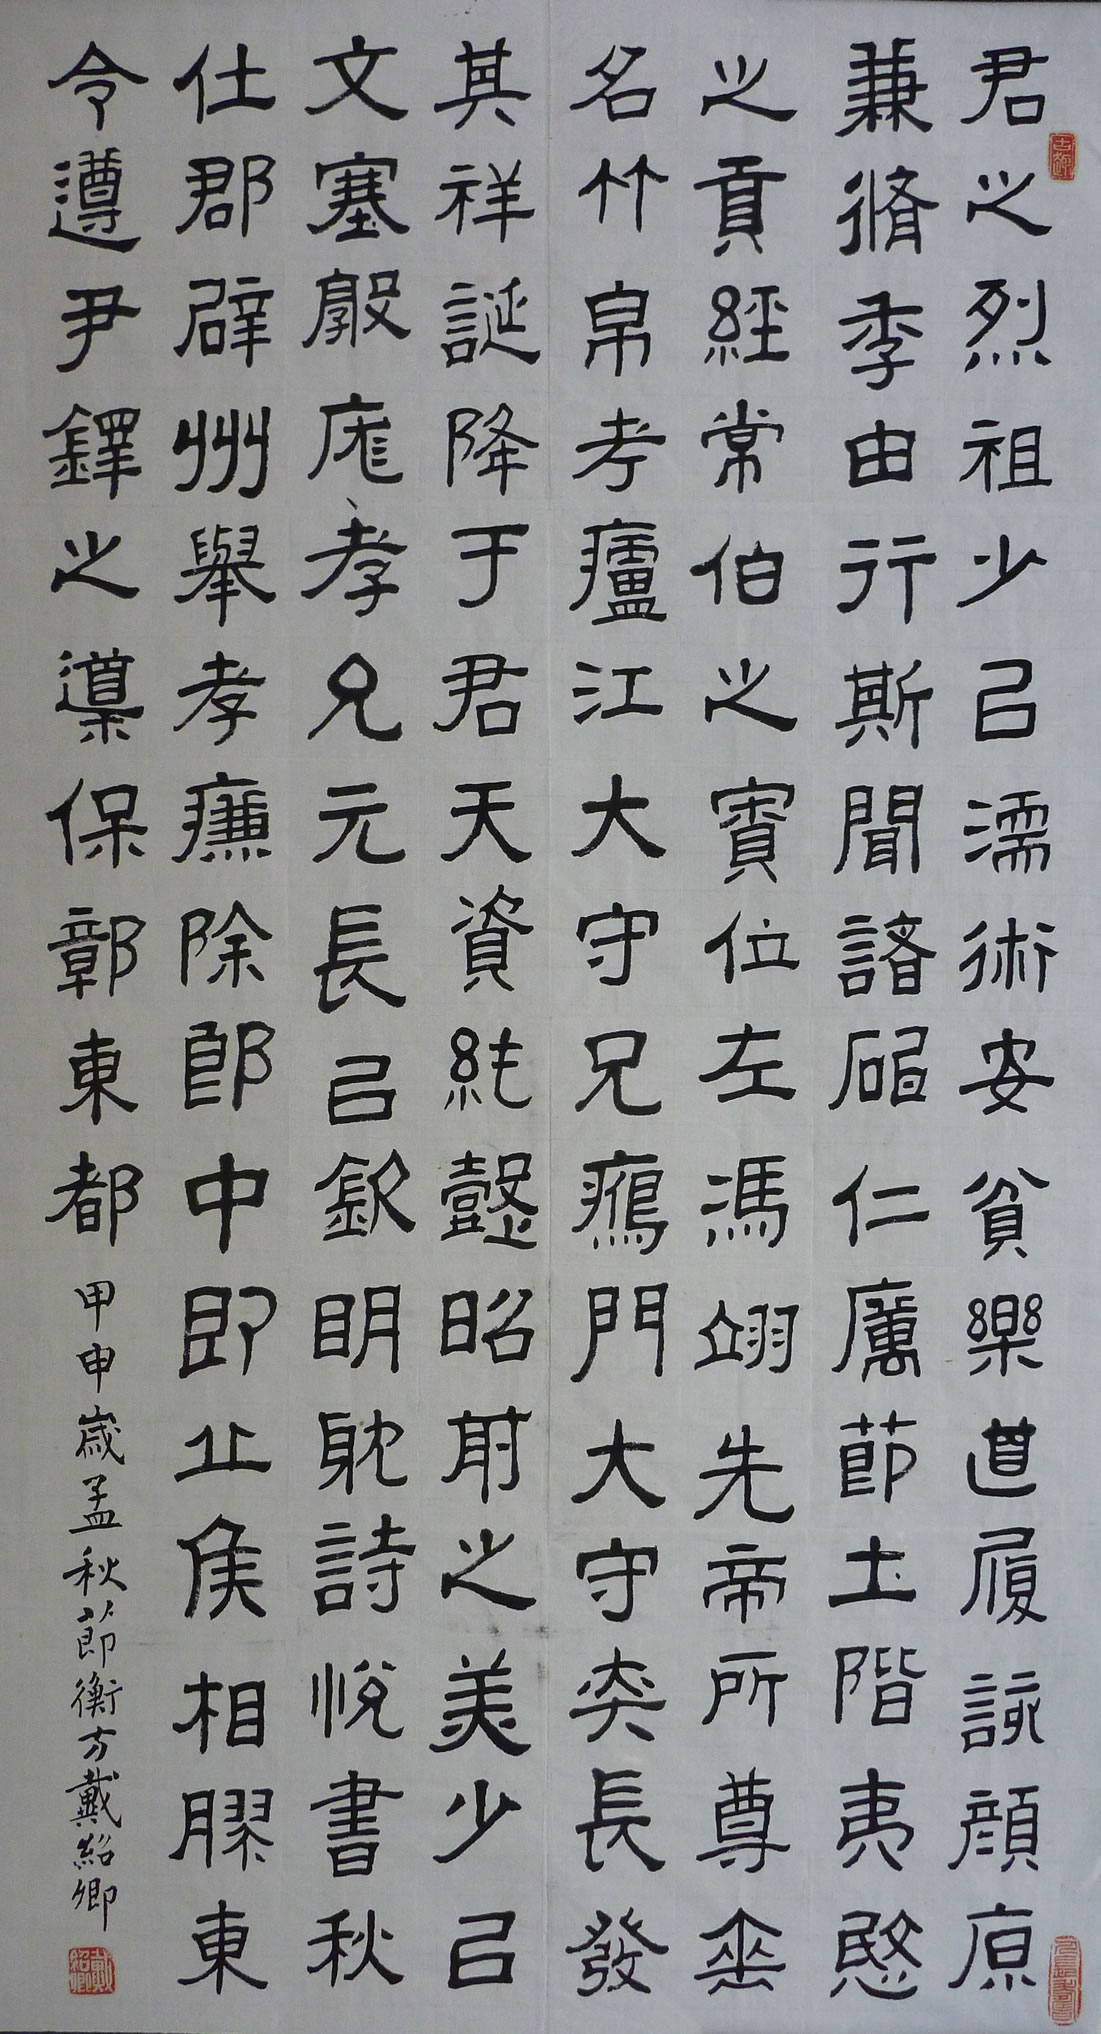 君之烈祖少㠯濡術安貧樂道履該顔原
兼脩季由行斯聞諸砠仁厲節土階夷愍
之貢經常伯之寮位左馮翊先帝所尊垂
名竹帛考廬江大守兄鴈門大守奕長發
其祥誕降于君天資純懿昭前之美少㠯
文塞敦庬孝兄元長㠯欽明耽詩悅書秋
仕郡辟州舉孝廉除郎中即丘侯相膠東
令遵尹鐸之導保鄣東都
甲申歲孟秋節衡方戴紹卿
戴紹卿